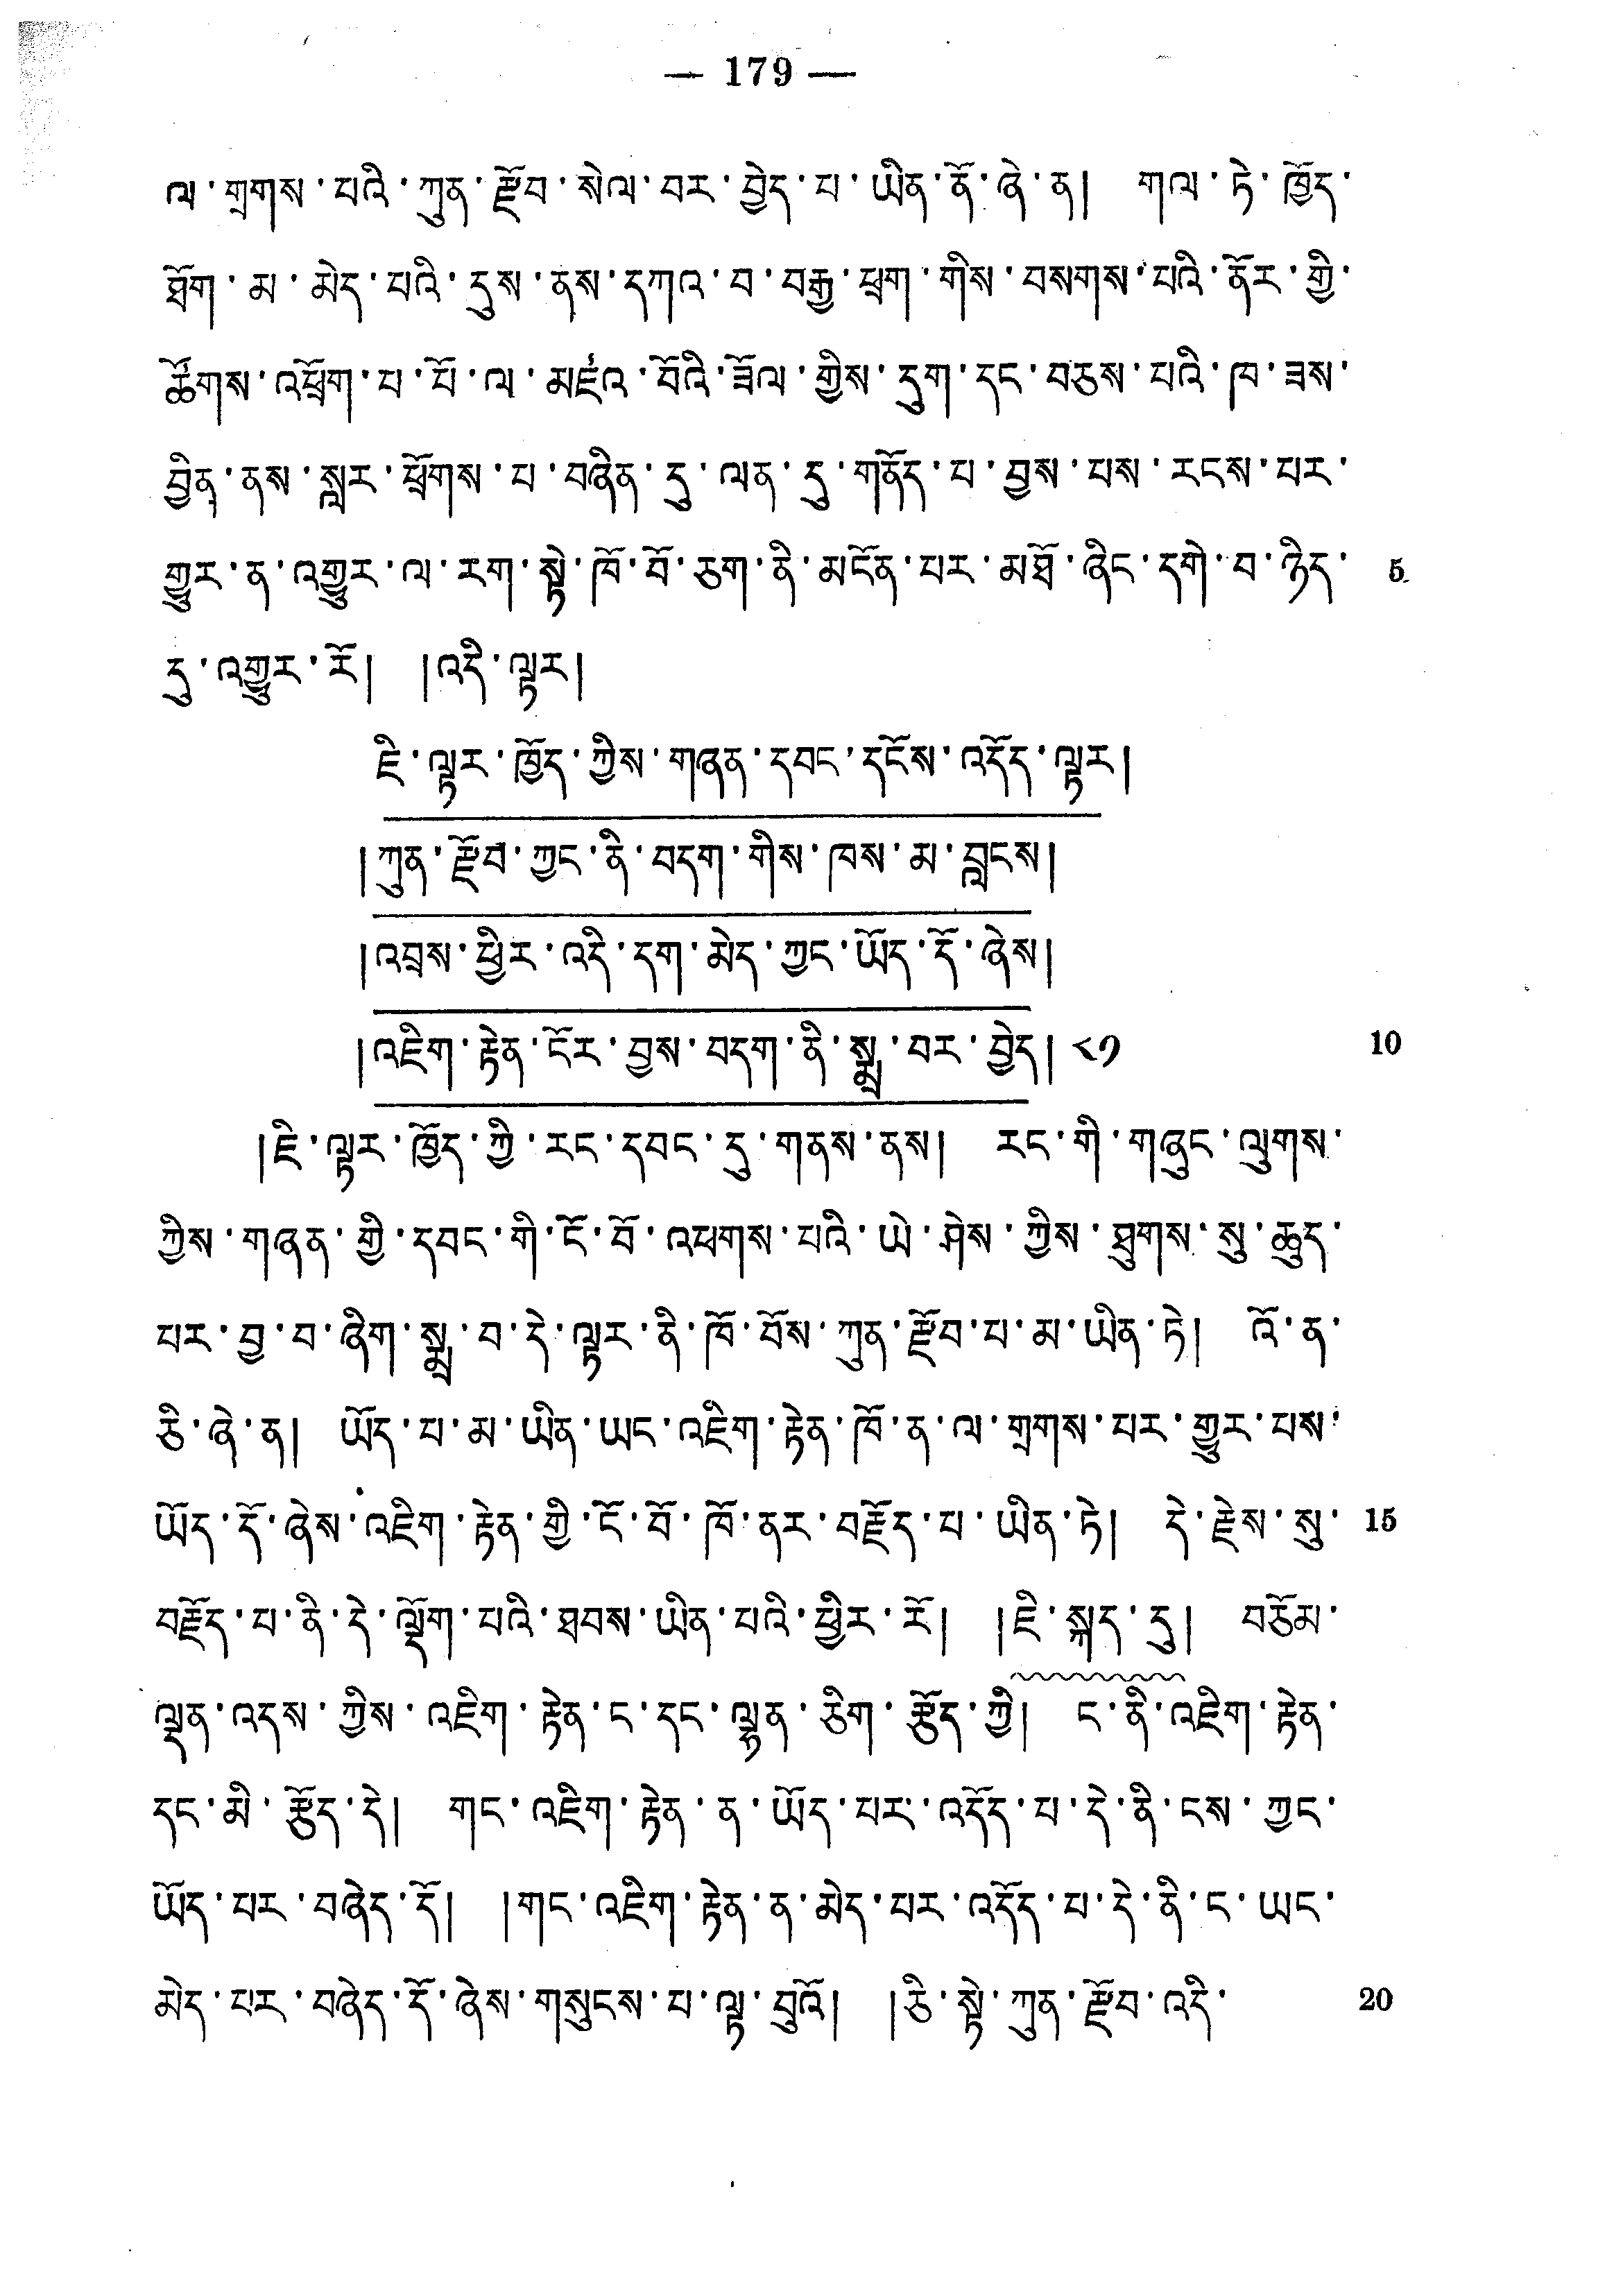 — 179 —
ལ་གྲགས་པའི་ཀུན་རྫོབ་སེལ་བར་བྱེད་པ་ཡིན་ནོ་ཞེ་ན། གལ་ཏེ་ཁྱོད་
ཐོག་མ་མེད་པའི་དུས་ནས་དཀའ་བ་བརྒྱ་ཕྲག་གིས་བསགས་པའི་ནོར་གྱི་
ཚོགས་འཕྲོག་པ་པོ་ལ་མཛའ་བོའི་ཟོལ་གྱིས་དུག་དང་བཅས་པའི་ཁ་ཟས་
བྱིན་ནས་སླར་ཕྲོགས་པ་བཞིན་དུ་ལན་དུ་གནོད་པ་བྱས་པས་རངས་པར་
གྱུར་ན་འགྱུར་ལ་རག་སྟེ་ཁོ་བོ་ཅག་ནི་མངོན་པར་མཐོ་ཞིང་དགེ་བ་ཉིད་ 5
དུ་འགྱུར་རོ། །འདི་ལྟར།
ཇི་ལྟར་ཁྱོད་ཀྱིས་གཞན་དབང་དངོས་འདོད་ལྟར།
།ཀུན་རྫོབ་ཀྱང་ནི་བདག་གིས་ཁས་མ་བླངས།
།འབྲས་ཕྱིར་འདི་དག་མེད་ཀྱང་ཡོད་དོ་ཞེས།
།འཇིག་རྟེན་ངོར་བྱས་བདག་ནི་སྨྲ་བར་བྱེད། ༨༡ 10
།ཇི་ལྟར་ཁྱོད་ཀྱི་རང་དབང་དུ་གནས་ནས། རང་གི་གཞུང་ལུགས་
ཀྱིས་གཞན་གྱི་དབང་གི་ངོ་བོ་འཕགས་པའི་ཡེ་ཤེས་ཀྱིས་ཐུགས་སུ་ཆུད་
པར་བྱ་བ་ཞིག་སྨྲ་བ་དེ་ལྟར་ནི་ཁོ་བོས་ཀུན་རྫོབ་པ་མ་ཡིན་ཏེ། འོ་ན་
ཅི་ཞེ་ན། ཡོད་པ་མ་ཡིན་ཡང་འཇིག་རྟེན་ཁོ་ན་ལ་གྲགས་པར་གྱུར་པས་
ཡོད་དོ་ཞེས་འཇིག་རྟེན་གྱི་ངོ་བོ་ཁོ་ནར་བརྗོད་པ་ཡིན་ཏེ། དེ་རྗེས་སུ་ 15
བརྗོད་པ་ནི་དེ་ལྡོག་པའི་ཐབས་ཡིན་པའི་ཕྱིར་རོ། །ཇི་སྐད་དུ། བཅོམ་
ལྡན་འདས་ཀྱིས་འཇིག་རྟེན་ང་དང་ལྷན་ཅིག་རྩོད་ཀྱི། ང་ནི་འཇིག་རྟེན་
དང་མི་རྩོད་དེ། གང་འཇིག་རྟེན་ན་ཡོད་པར་འདོད་པ་དེ་ནི་ངས་ཀྱང་
ཡོད་པར་བཞེད་དོ། །གང་འཇིག་རྟེན་ན་མེད་པར་འདོད་པ་དེ་ནི་ང་ཡང་
མེད་པར་བཞེད་དོ་ཞེས་གསུངས་པ་ལྟ་བུའོ། །ཅི་སྟེ་ཀུན་རྫོབ་འདི་ 20